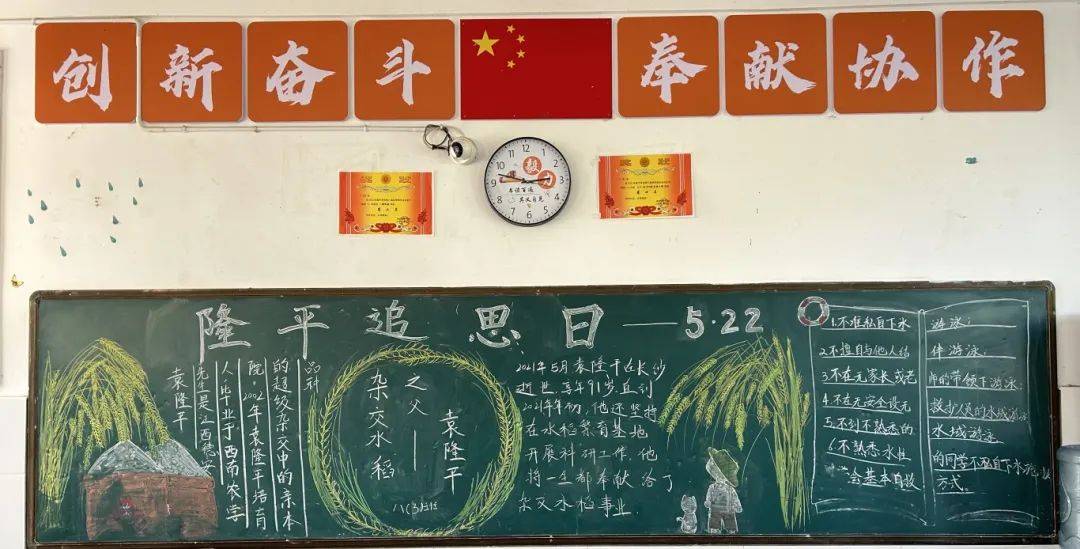 创新奋斗
奉献协作
毅力
书读百遍
其义自见
隆平追思日——5.22
袁隆平
先生是江西德安
人，毕业于西南农学
院。2002年袁隆平培育
的超级杂交中的亲本
品种
杂交水稻
之父——
袁隆平
八(3)班
2021年5月袁隆平在长沙
逝世，享年91岁，直到
2021年年初，他还坚持
在水稻繁育基地
开展科研工作，他
将一生都奉献给了
杂交水稻事业.
1.不准私自下水
游泳；
2.不擅自与他人结
伴游泳；
3.不在无家长或老
师的带领下游泳；
4.不在无安全设
救护人员的水域游泳
5.不到不熟悉的
水域游泳
6.不熟悉水性
的同学不擅自下水
学会基本自救
方式。